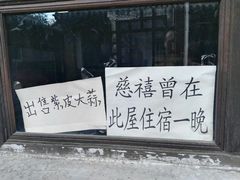 出售紫皮大蒜
慈禧曾在
此屋住宿一晚